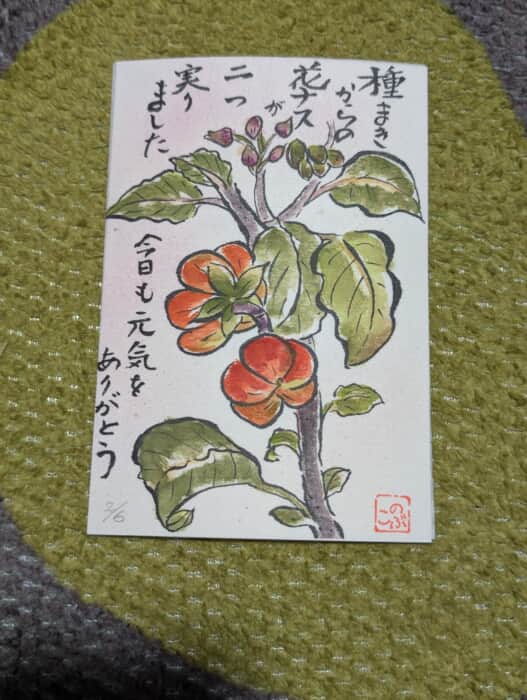 種まき
からの
花ナス
が
二つ
実り
ました
今日も元気を
ありがとう
2/6
このぶ